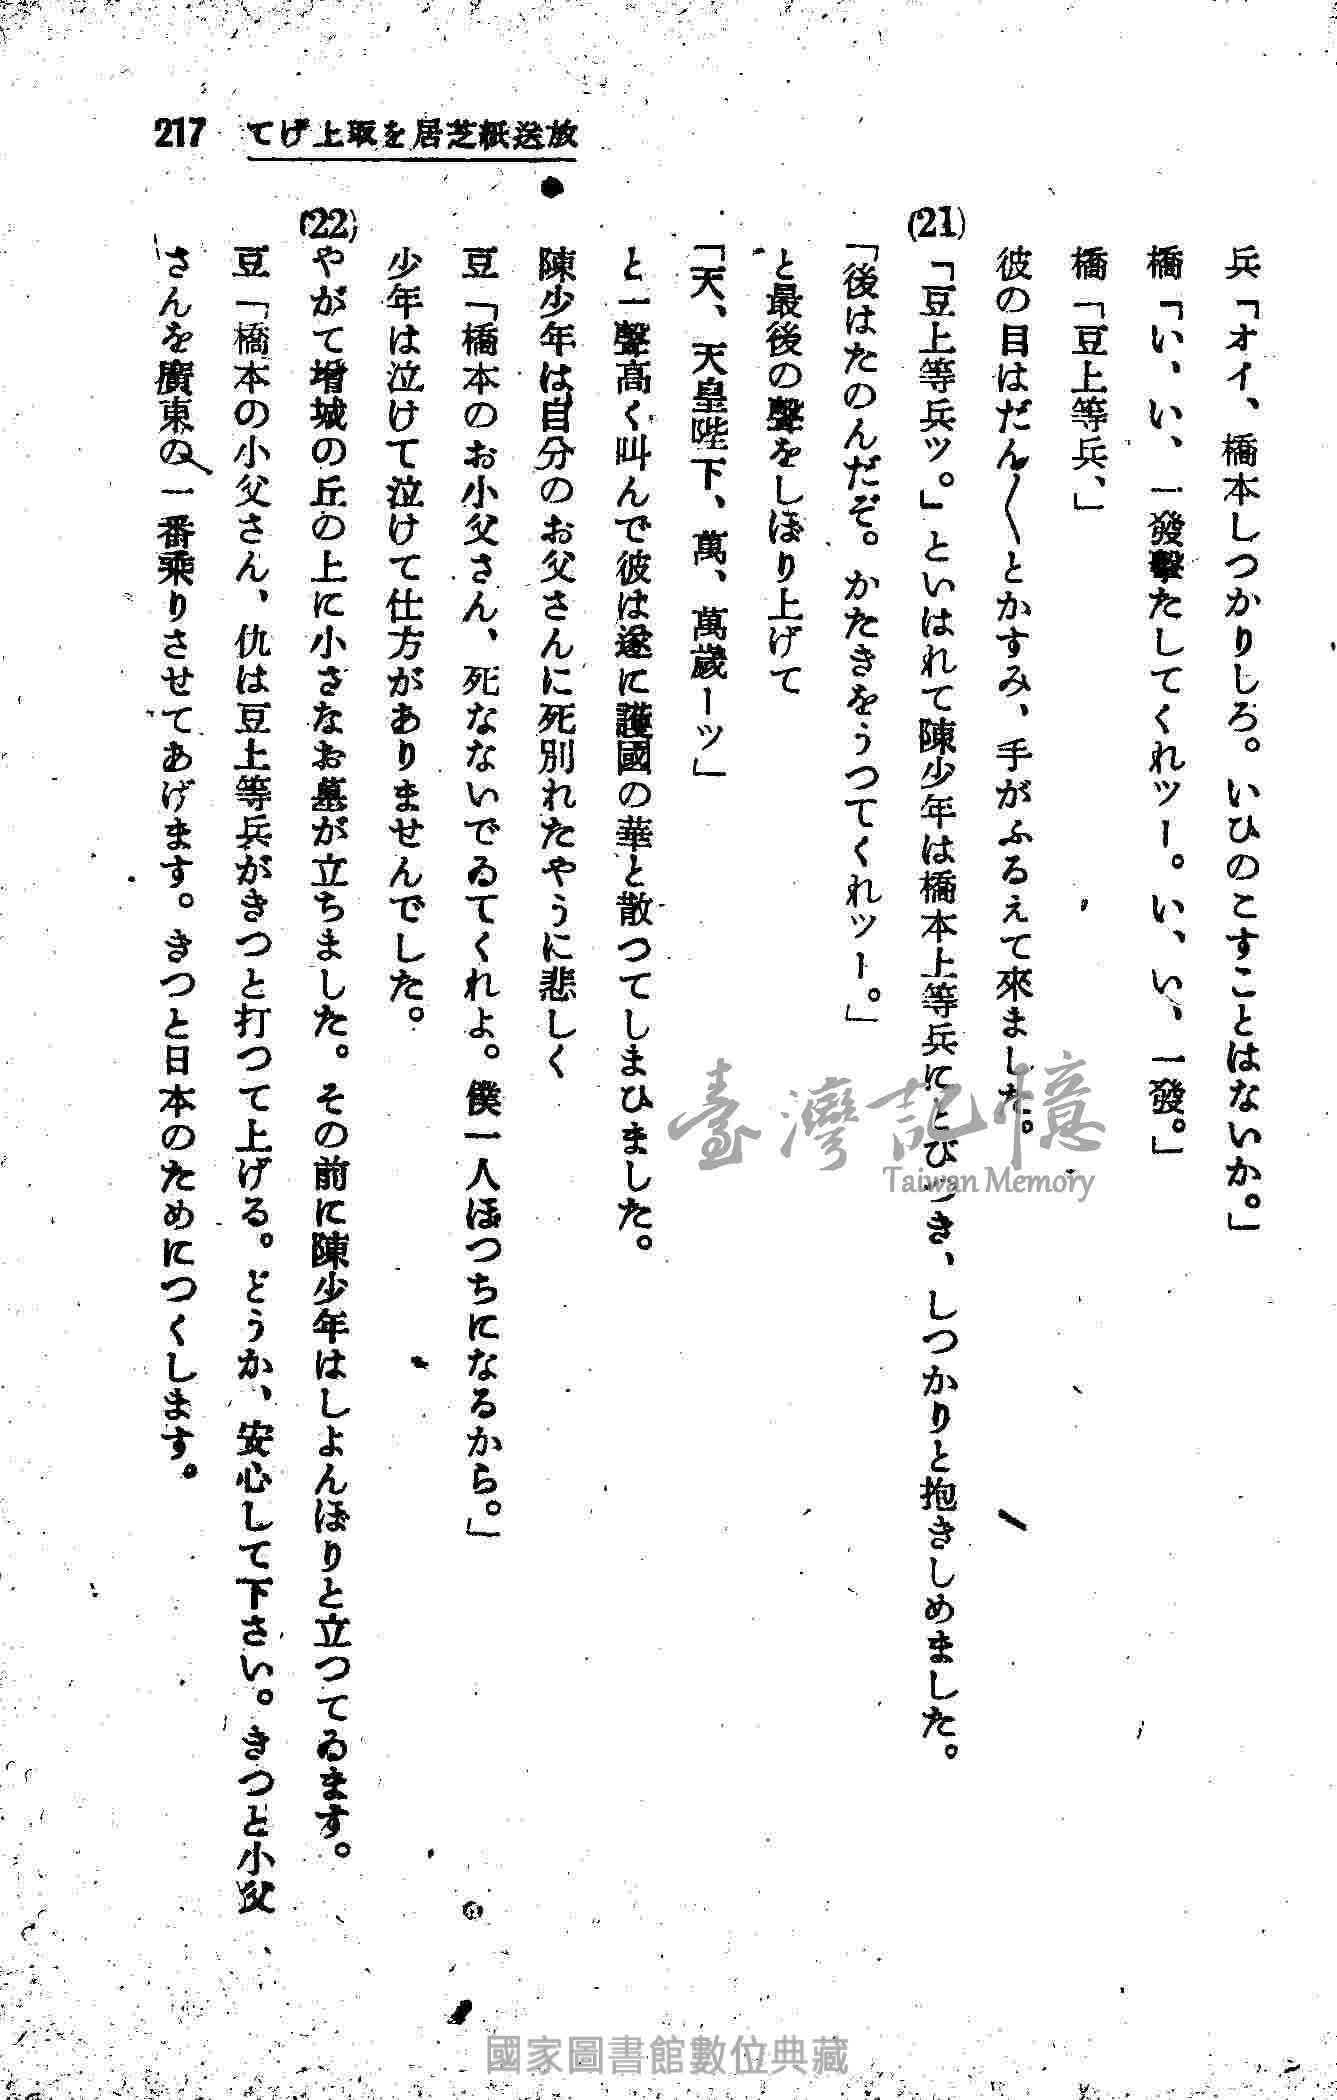 217 てげ上取を居芝紙送放
兵「オイ、橋本しつかりしろ。いひのこすことはないか。」
橋「い、い、一發擊たしてくれツー。い、い、一發。」
橋「豆上等兵、」
彼の目はだん〱とかすみ、手がふるえて來ました。
(21)
「豆上等兵ツ。」といはれて陳少年は橋本上等兵にとびつき、しつかりと抱きしめました。
「後はたのんだぞ。かたきをうつてくれツー。」
と最後の聲をしぼり上げて
「天、天皇陛下、萬、萬歲ーツ」
と一聲高く叫んで彼は遂に護國の華と散つてしまひました。
陳少年は自分のお父さんに死別れたやうに悲しく
豆「橋本のお小父さん、死なないでゐてくれよ。僕一人ぼつちになるから。」
少年は泣けて泣けて仕方がありませんでした。
(22)
やがて增城の丘の上に小さなお墓が立ちました。その前に陳少年はしよんぼりと立つてゐます。
豆「橋本の小父さん、仇は豆上等兵がきつと打つて上げる。どうか、安心して下さい。きつと小父
さんを廣東の一番乘りさせてあげます。きつと日本のためにつくします。
臺灣記憶
Taiwan Memory
國家圖書館數位典藏